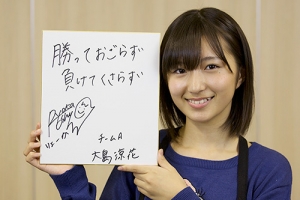 勝っておごらず
負けてくさらず
りょーかちゃん
チームA
大島涼花